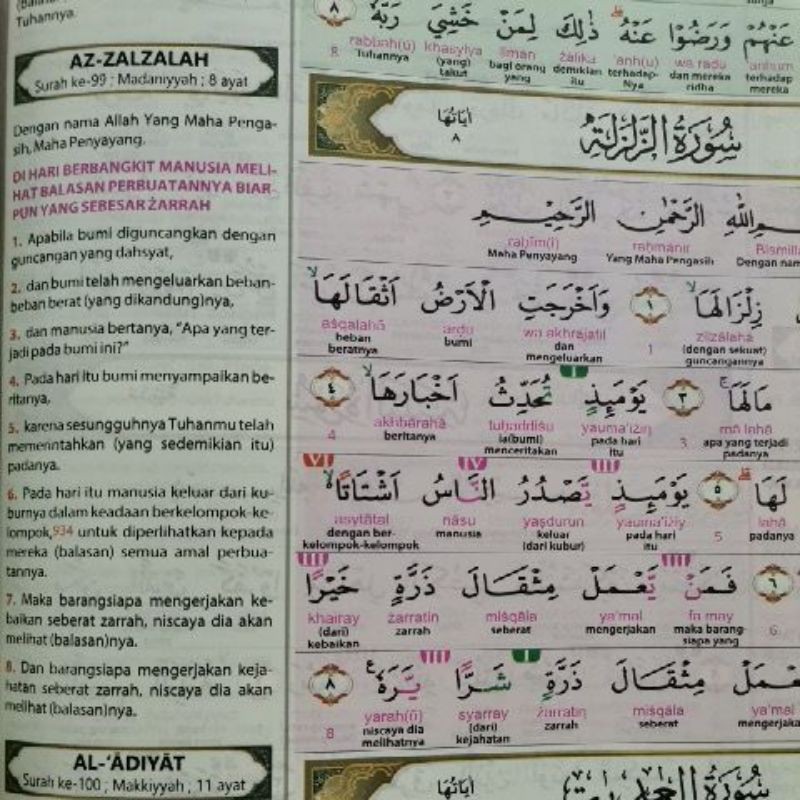 Tuhannya.
AZ-ZALZALAH
Surah ke-99 ; Madaniyyah ; 8 ayat
Dengan nama Allah Yang Maha Penga-
sih, Maha Penyayang.
DI HARI BERBANGKIT MANUSIA MELI-
HAT BALASAN PERBUATANNYA BIAR-
PUN YANG SEBESAR ŻARRAH
1. Apabila bumi diguncangkan dengan
guncangan yang dahsyat,
2. dan bumi telah mengeluarkan beban-
beban berat (yang dikandung)nya,
3. dan manusia bertanya, "Apa yang ter-
jadi pada bumi ini?"
4. Pada hari itu bumi menyampaikan be-
ritanya,
5. karena sesungguhnya Tuhanmu telah
memerintahkan (yang sedemikian itu)
padanya.
6. Pada hari itu manusia keluar dari ku-
burnya dalam keadaan berkelompok-ke-
lompok,934 untuk diperlihatkan kepada
mereka (balasan) semua amal perbua-
tannya.
7. Maka barangsiapa mengerjakan ke-
baikan seberat zarrah, niscaya dia akan
melihat (balasan)nya.
8. Dan barangsiapa mengerjakan keja-
hatan seberat zarrah, niscaya dia akan
melihat (balasan)nya.
AL-'ĀDIYĀT
Surah ke-100 ; Makkiyyah ; 11 ayat
عَنْهُمْ وَرَضُوْا عَنْهُ ذٰلِكَ لِمَنْ خَشِيَ رَبَّهٗ ٨
'anhum wa raḍu 'anh(u) żālika liman khasyiya rabbah(ū) 8
terhadap mereka dan mereka ridha terhadap-Nya demikian itu bagi orang yang (yang) takut Tuhannya
سُوْرَةُ الزَّلْزَلَةِ اٰيَاتُهَا ٨
الله الرَّحْمٰنِ الرَّحِيْمِ
raḥmānir raḥīm(i)
Dengan nama Yang Maha Pengasih Maha Penyayang
زِلْزَالَهَا ١ وَاَخْرَجَتِ الْاَرْضُ اَثْقَالَهَا
zilzālahā 1 wa akhrajatil arḍu aśqālahā
(dengan sekuat) guncangannya dan mengeluarkan bumi beban beratnya
مَا لَهَا ٣ يَوْمَىِٕذٍ تُحَدِّثُ اَخْبَارَهَا ٤
mā lahā 3 yauma'iżin tuḥaddiśu akhbārahā 4
apa yang terjadi padanya pada hari itu ia(bumi) menceritakan beritanya
لَهَا ٥ يَوْمَىِٕذٍ يَّصْدُرُ النَّاسُ اَشْتَاتًا
lahā 5 yauma'iżiy yaṣdurun nāsu asytātal
padanya pada hari itu keluar (dari kubur) manusia dengan ber-kelompok-kelompok
٦ فَمَنْ يَّعْمَلْ مِثْقَالَ ذَرَّةٍ خَيْرًا
6 fa may ya'mal miśqāla żarratin khairay
maka barang siapa yang mengerjakan seberat zarrah (dari) kebaikan
مِثْقَالَ ذَرَّةٍ شَرًّا يَّرَهٗ ٨
ya'mal miśqāla żarratin syarray yarah(ū) 8
seberat zarrah (dari) kejahatan niscaya dia melihatnya
سُوْرَةُ الْعٰدِيٰتِ اٰيَاتُهَا